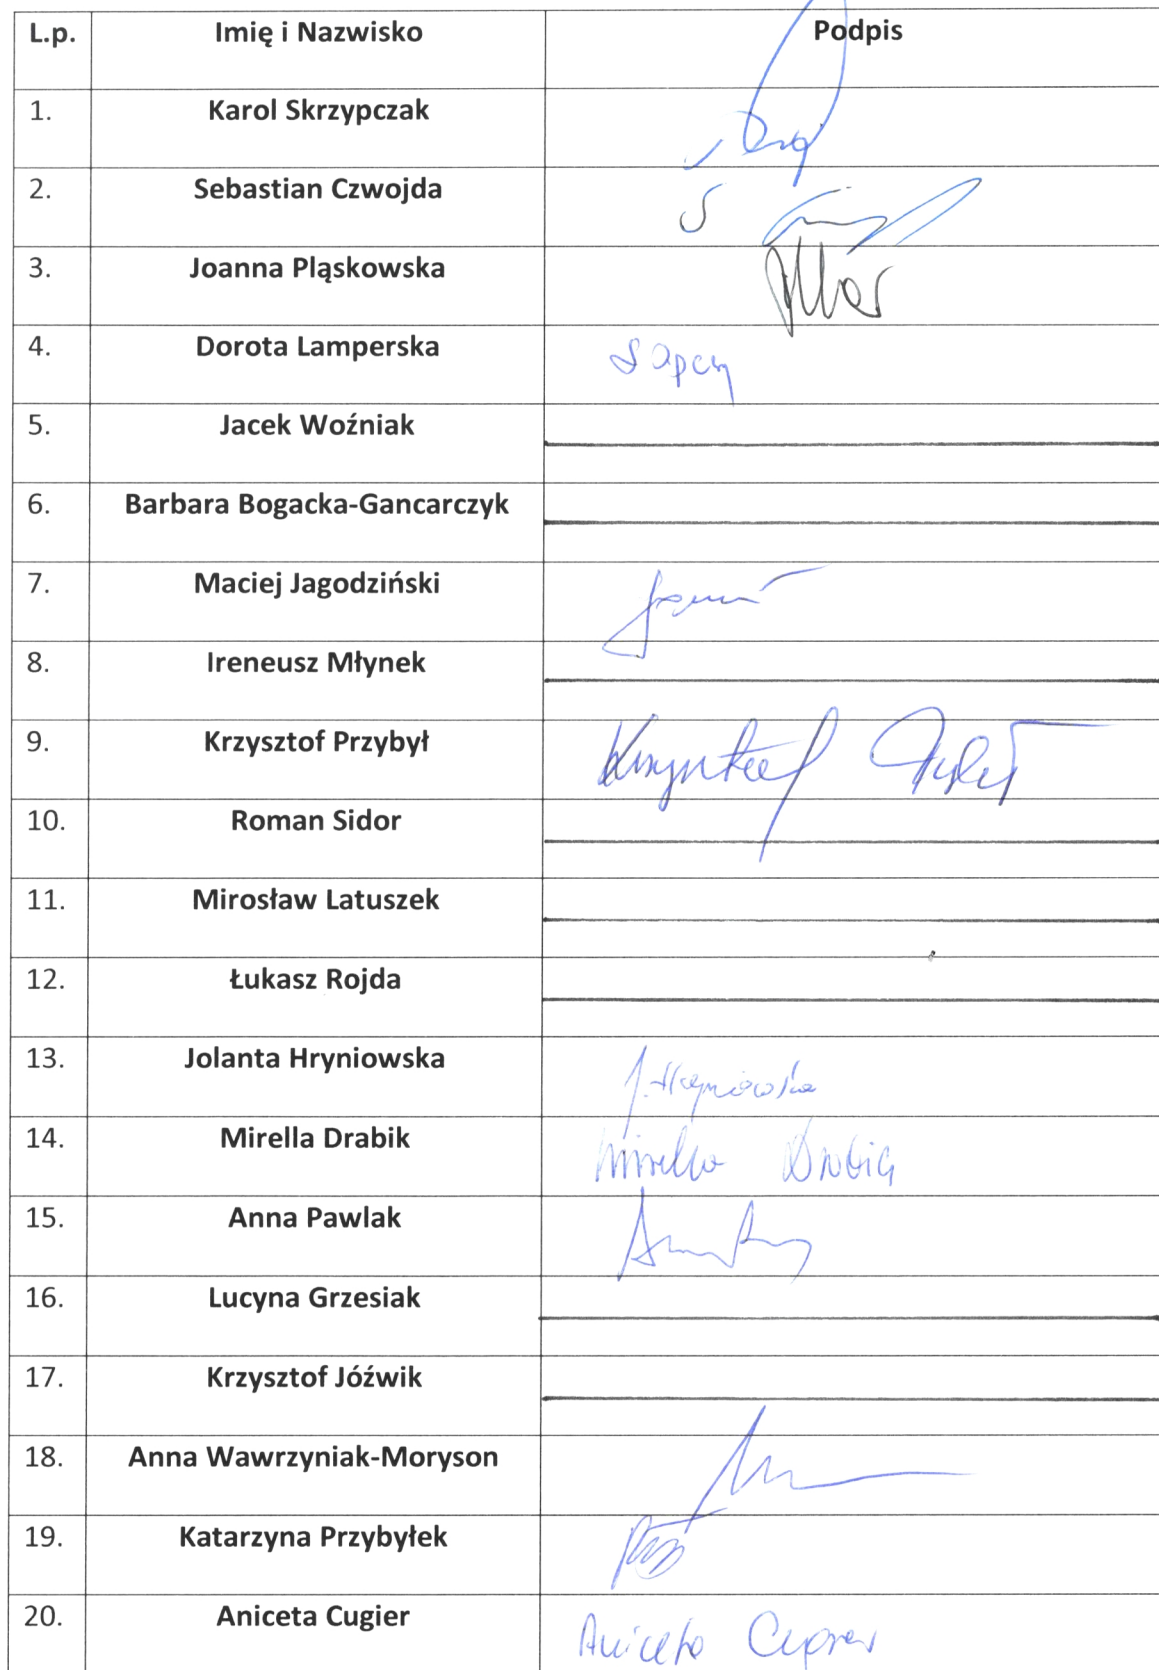 L.p. Imię i Nazwisko Podpis
1. Karol Skrzypczak
2. Sebastian Czwojda
3. Joanna Pląskowska
4. Dorota Lamperska
5. Jacek Woźniak
6. Barbara Bogacka-Gancarczyk
7. Maciej Jagodziński
8. Ireneusz Młynek
9. Krzysztof Przybył Krzysztof
10. Roman Sidor
11. Mirosław Latuszek
12. Łukasz Rojda
13. Jolanta Hryniowska J. Hryniowska
14. Mirella Drabik Mirella Drabik
15. Anna Pawlak
16. Lucyna Grzesiak
17. Krzysztof Jóźwik
18. Anna Wawrzyniak-Moryson
19. Katarzyna Przybyłek
20. Aniceta Cugier Aniceta Cugier